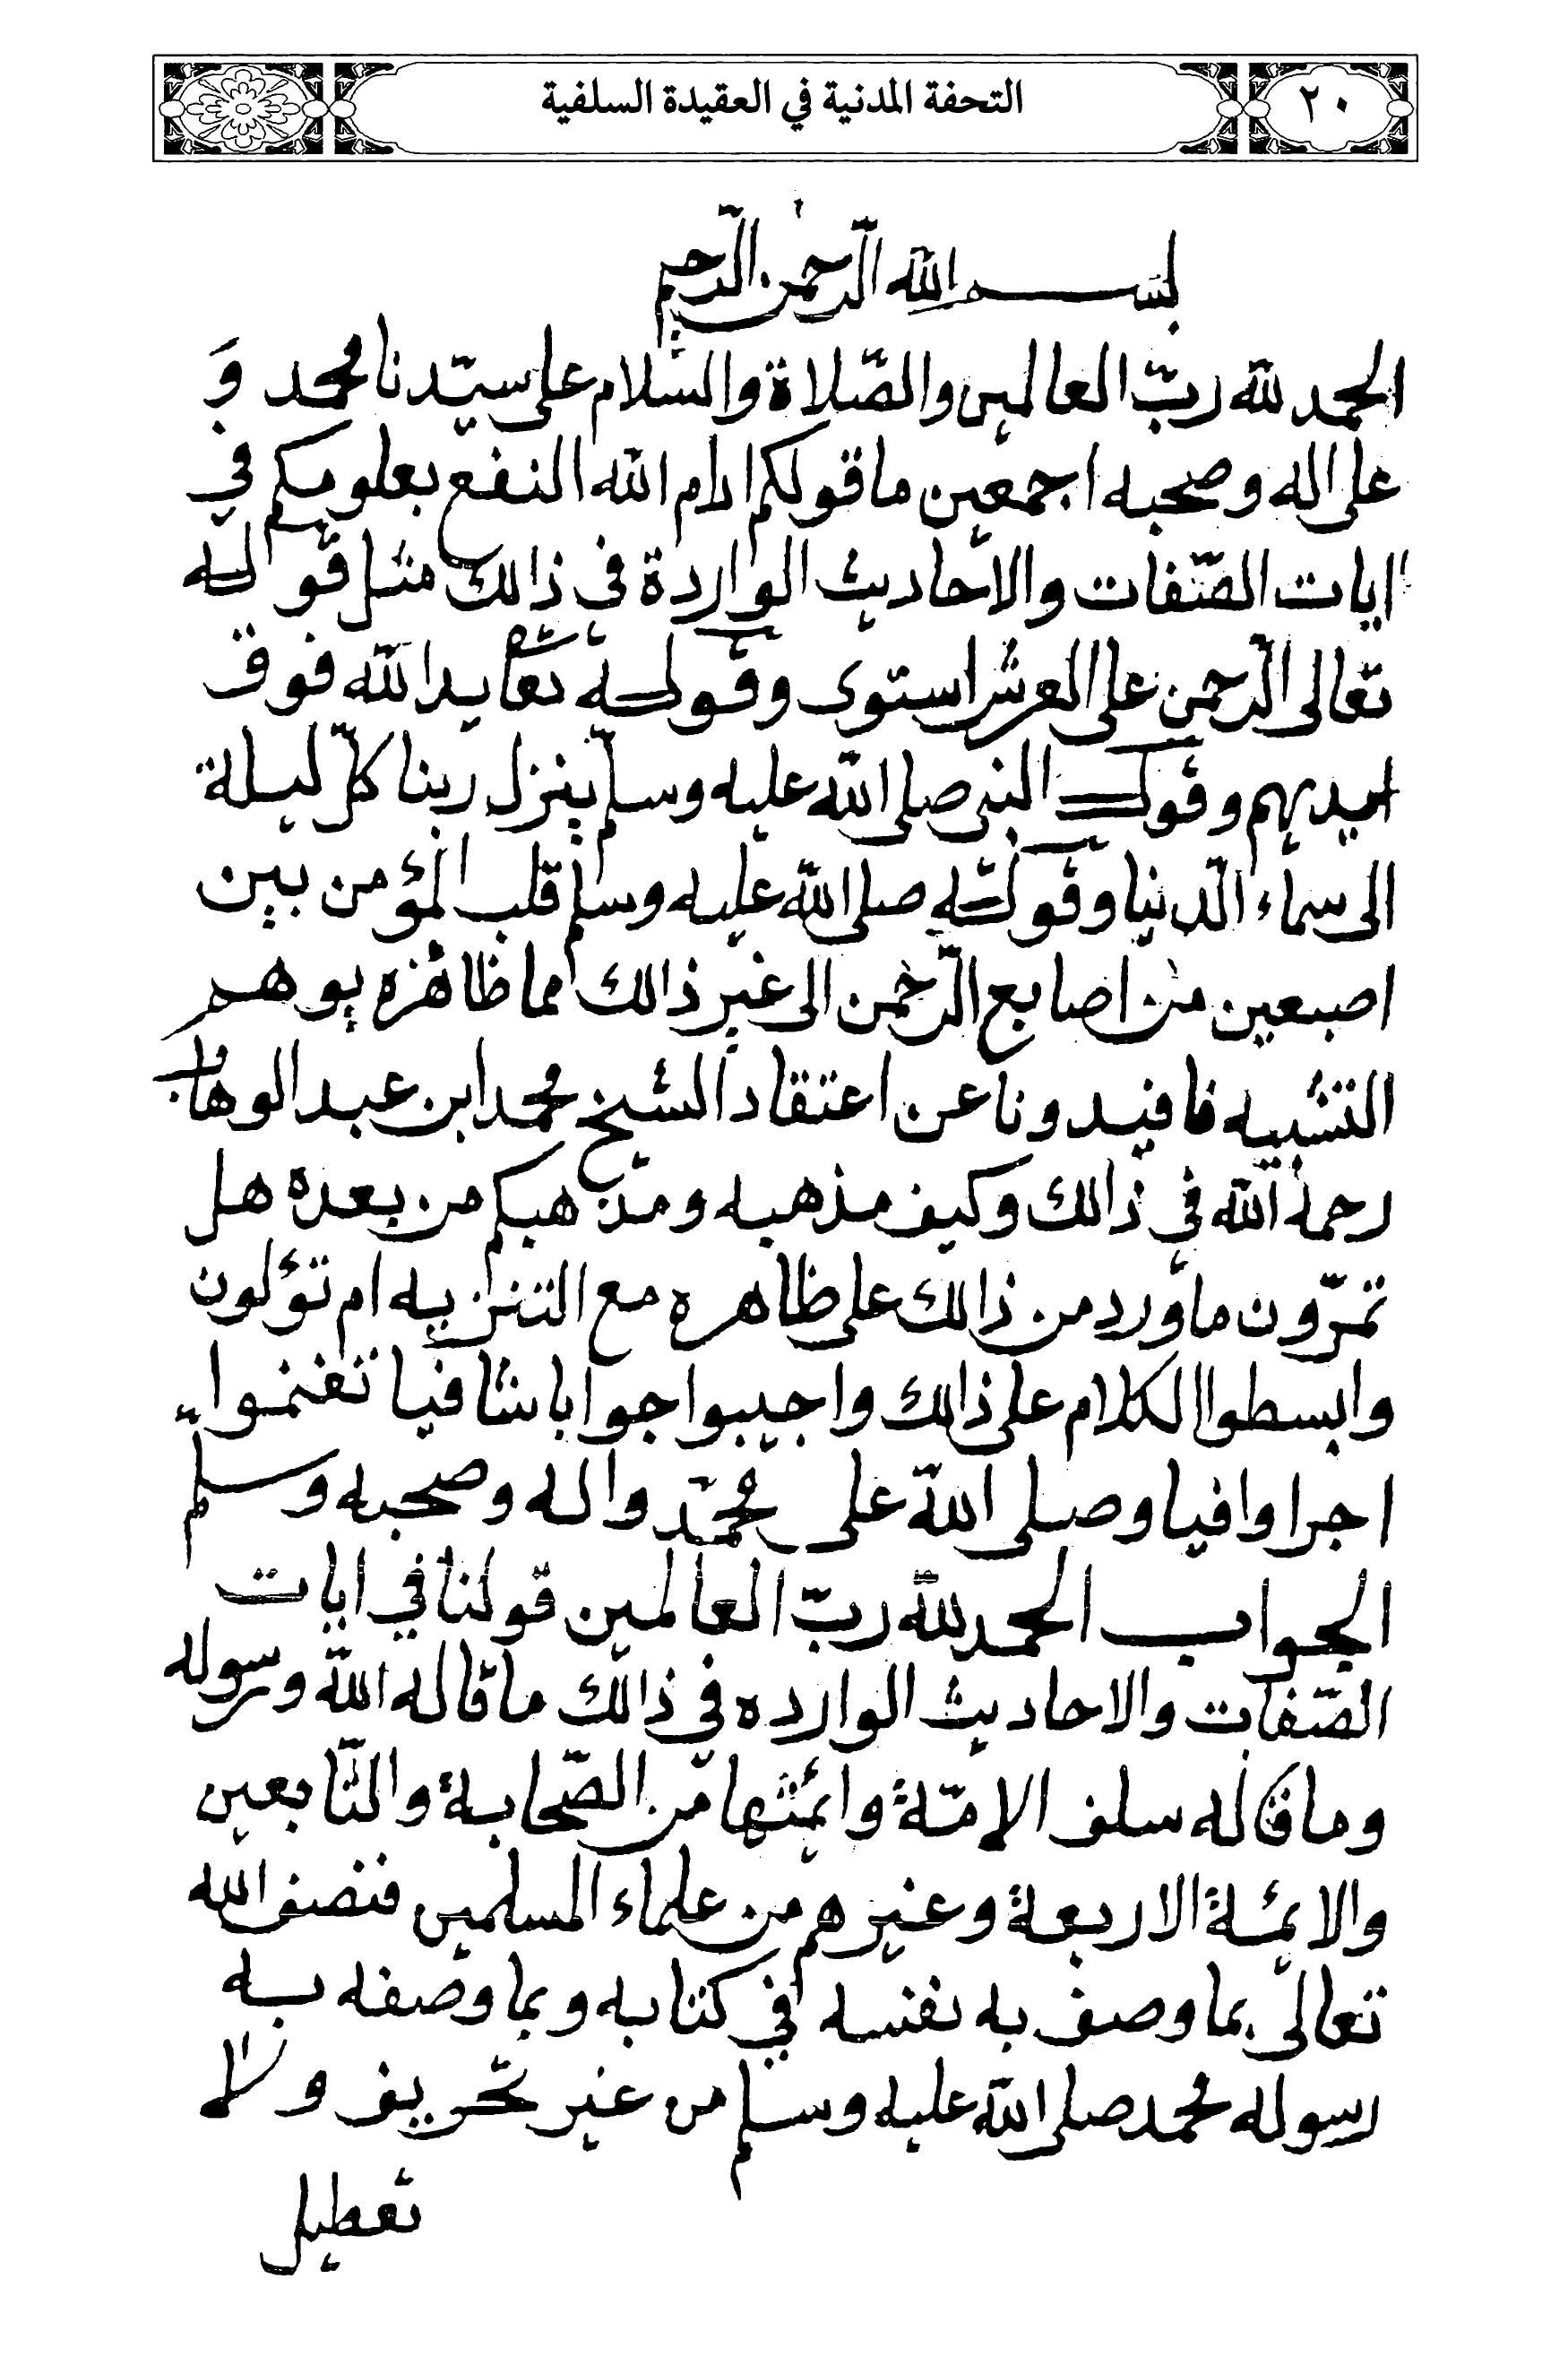 ٢٠
التحفة المدنية في العقيدة السلفية
بسم الله الرحمن الرحيم
الحمد لله ربّ العالمين والصّلاة والسّلام على سيّدنا محمد وَ
على اله وصحبه اجمعين ما قولكم ادام الله النفع بعلومكم في
ايات الصّفات والاحاديث الواردة في ذالك مثل قوله
تعالى الرّحمن على العرش استوى وقوله تعا يد الله فوق
ايديهم وقول النبي صلى الله عليه وسلم ينزل ربنا كلّ ليلة
الى سماء الدّنيا وقوله صلى الله عليه وسلم قلب المؤمن بين
اصبعين من اصابع الرّحمن الى غير ذالك مما ظاهره يوهم
التشبيه فافيدونا عن اعتقاد الشيخ محمد ابن عبد الوهاب
رحمة الله في ذالك وكيف مذهبه ومذهبكم من بعده هل
تمرّون ما ورد من ذالك على ظاهره مع التنزيه ام تؤلون
وابسطوا الكلام على ذالك واجيبوا جوابا شافيا تغنموا
اجرا وافيا وصلى الله على محمّد واله وصحبه وسلم
الجواب الحمد لله ربّ العالمين قولنا في ايات
الصّفات والاحاديث الوارده في ذالك ما قاله الله ورسوله
وما قاله سلف الامّة وائمتها من الصّحابة والتّابعين
والائمة الاربعة وغيرهم من علماء المسلمين فنصف الله
تعالى بما وصف به نفسه في كتابه وبما وصفه به
رسوله محمد صلى الله عليه وسلم من غير تحريف ولا
تعطيل